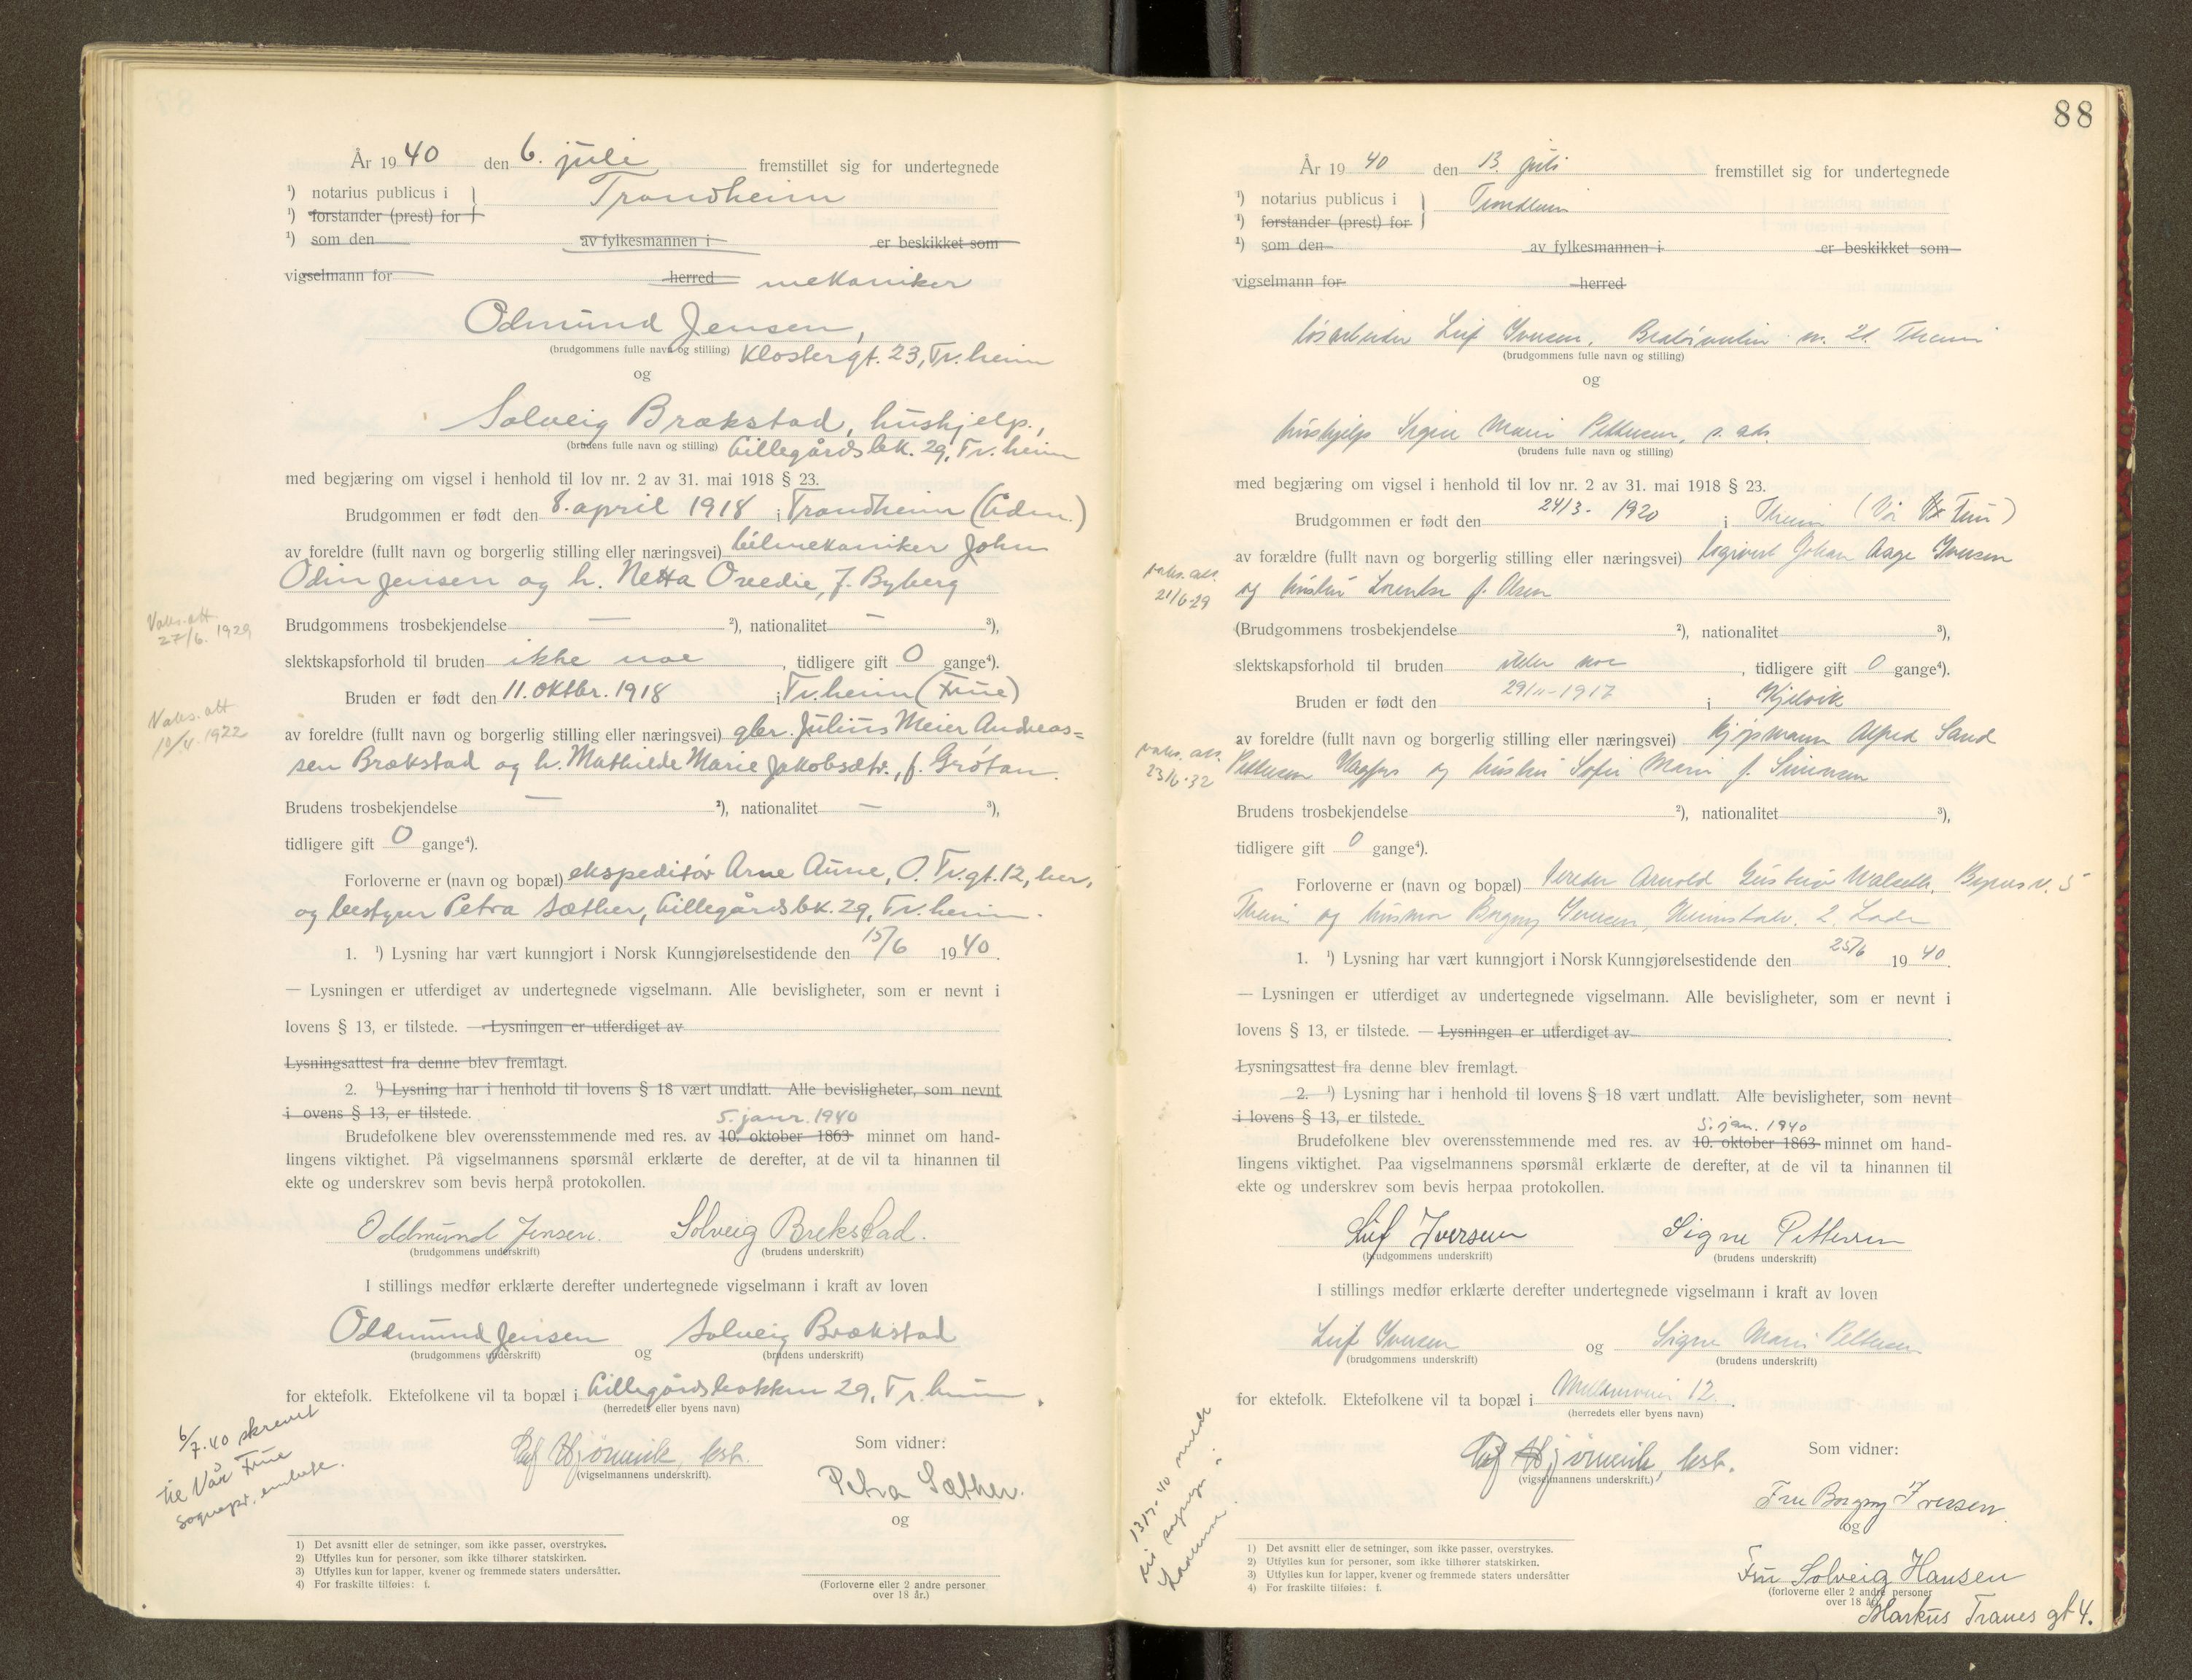 År 1940 den 6. juli fremstillet sig for undertegnede
¹) notarius publicus i } Trondheim
¹) forstander (prest) for
¹) som den av fylkesmannen i er beskikket som
vigselmann for herred mekaniker
Odmund Jensen,
(brudgommens fulle navn og stilling) Klostergt. 23, Tr.heim
og
Solveig Brækstad, hushjelp.,
(brudens fulle navn og stilling) Lillegårdsbk. 29, Tr.heim
med begjæring om vigsel i henhold til lov nr. 2 av 31. mai 1918 § 23.
Brudgommen er født den 8. april 1918 i Trondheim (Ladm.)
av foreldre (fullt navn og borgerlig stilling eller næringsvei) bilmekaniker John
Odin Jensen og h. Netta Ovedie, f. Byberg
Vaks. att. 27/6. 1929
Brudgommens trosbekjendelse — ²), nationalitet — ³),
slektskapsforhold til bruden ikke noe, tidligere gift 0 gange⁴).
Bruden er født den 11. oktbr. 1918 i Tr.heim (Frue)
Vaks. att
av foreldre (fullt navn og borgerlig stilling eller næringsvei) gbr. Julius Meier Andreas=
sen Brækstad og h. Mathilde Marie Jakobsdtr., f. Grøtan.
Brudens trosbekjendelse — ²), nationalitet — ³),
tidligere gift 0 gange⁴).
Forloverne er (navn og bopæl) ekspeditør Arne Aune, O. Tr.gt. 12, her,
og bestyrer Petra Sæther, Lillegårdsbk. 29, Tr.heim.
1. ¹) Lysning har vært kunngjort i Norsk Kunngjørelsestidende den 15/6 1940.
— Lysningen er utferdiget av undertegnede vigselmann. Alle bevisligheter, som er nevnt i
lovens § 13, er tilstede. — Lysningen er utferdiget av
Lysningsattest fra denne blev fremlagt.
2. ¹) Lysning har i henhold til lovens § 18 vært undlatt. Alle bevisligheter, som nevnt
i ovens § 13, er tilstede.
5. janr. 1940
Brudefolkene blev overensstemmende med res. av 10. oktober 1863 minnet om hand-
lingens viktighet. På vigselmannens spørsmål erklærte de derefter, at de vil ta hinannen til
ekte og underskrev som bevis herpå protokollen.
Oddmund Jensen. Solveig Brekstad.
(brudgommens underskrift) (brudens underskrift)
I stillings medfør erklærte derefter undertegnede vigselmann i kraft av loven
Oddmund Jensen og Solveig Brækstad
(brudgommens underskrift) (brudens underskrift)
for ektefolk. Ektefolkene vil ta bopæl i Lillegårdsbakken 29, Tr.heim.
(herredets eller byens navn)
6/7.40 skrevet
til Vår Frue
sognepr. embede.
(vigselmannens underskrift).
Som vidner:
Petra Sæther.
og
(Forloverne eller 2 andre personer
over 18 år.)
1) Det avsnitt eller de setninger, som ikke passer, overstrykes.
2) Utfylles kun for personer, som ikke tilhører statskirken.
3) Utfylles kun for lapper, kvener og fremmede staters undersåtter.
4) For fraskilte tilføies: f.
88
År 1940 den 13. juli fremstillet sig for undertegnede
¹) notarius publicus i } Trondheim
¹) forstander (prest) for
¹) som den av fylkesmannen i er beskikket som
vigselmann for herred
løsarbeider Leif Iversen,
(brudgommens fulle navn og stilling)
og
hushjelp Signe Marie Pettersen, s. ads.
(brudens fulle navn og stilling)
med begjæring om vigsel i henhold til lov nr. 2 av 31. mai 1918 § 23.
Brudgommen er født den 24/3- 1920 i Theim (Vår Frue)
av forældre (fullt navn og borgerlig stilling eller næringsvei) Johan Aage Iversen
og hustru Lorentse f. Olsen
vaks. att. 21/6-29
(Brudgommens trosbekjendelse ²), nationalitet ³),
slektskapsforhold til bruden ikke noe, tidligere gift 0 gange⁴).
Bruden er født den 29/11-1917 i Kjelvik
av forældre (fullt navn og borgerlig stilling eller næringsvei) kjøpmann Alfred Sand
vaks. att. 23/6-32
Pettersen og hustru Sofie Marie f. Simonsen
Brudens trosbekjendelse ²), nationalitet ³),
tidligere gift 0 gange⁴).
Forloverne er (navn og bopæl) Arnold
Theim og husmor Borgny Iversen, 2. Lade
1. ¹) Lysning har vært kunngjort i Norsk Kunngjørelsestidende den 25/6 1940.
— Lysningen er utferdiget av undertegnede vigselmann. Alle bevisligheter, som er nevnt i
lovens § 13, er tilstede. — Lysningen er utferdiget av
Lysningsattest fra denne blev fremlagt.
2. ¹) Lysning har i henhold til lovens § 18 vært undlatt. Alle bevisligheter, som nevnt
i lovens § 13, er tilstede.
5. jan. 1940
Brudefolkene blev overensstemmende med res. av 10. oktober 1863 minnet om hand-
lingens viktighet. Paa vigselmannens spørsmål erklærte de derefter, at de vil ta hinannen til
ekte og underskrev som bevis herpaa protokollen.
Leif Iversen Signe Pettersen
(brudgommens underskrift) (brudens underskrift)
I stillings medfør erklærte derefter undertegnede vigselmann i kraft av loven
Leif Iversen og Signe Marie Pettersen
(brudgommens underskrift) (brudens underskrift)
for ektefolk. Ektefolkene vil ta bopæl i 12.
(herredets eller byens navn)
13/7-40
(vigselmannens underskrift.)
Som vidner:
Fru Borgny Iversen
og
Fru Solveig Hansen
(forloverne eller 2 andre personer
over 18 år.)
Markus Tranes gt 4.
1) Det avsnitt eller de setninger, som ikke passer, overstrykes.
2) Utfylles kun for personer, som ikke tilhører statskirken.
3) Utfylles kun for lapper, kvener og fremmede staters undersåtter
4) For fraskilte tilføies: f.